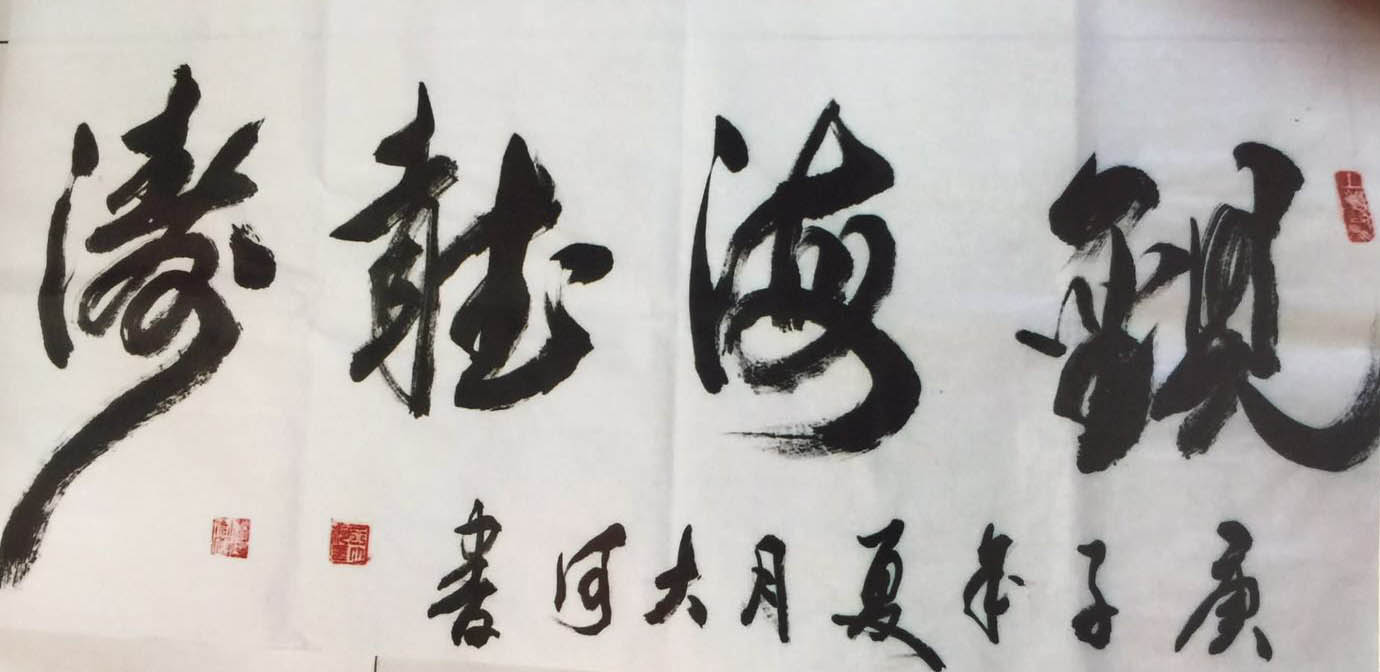 觀海聽濤
庚子年夏月大河書